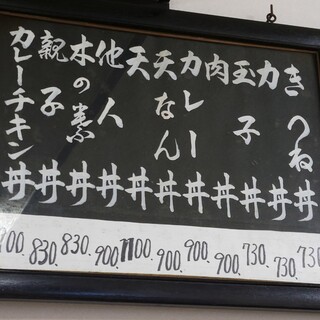 きつね丼 730.
力丼 730.
玉子丼 730.
肉丼 900.
カレー丼 900.
天なん丼 900.
天丼 1100.
他人丼 900.
木の葉丼 830.
親子丼 830.
カレーチキン丼